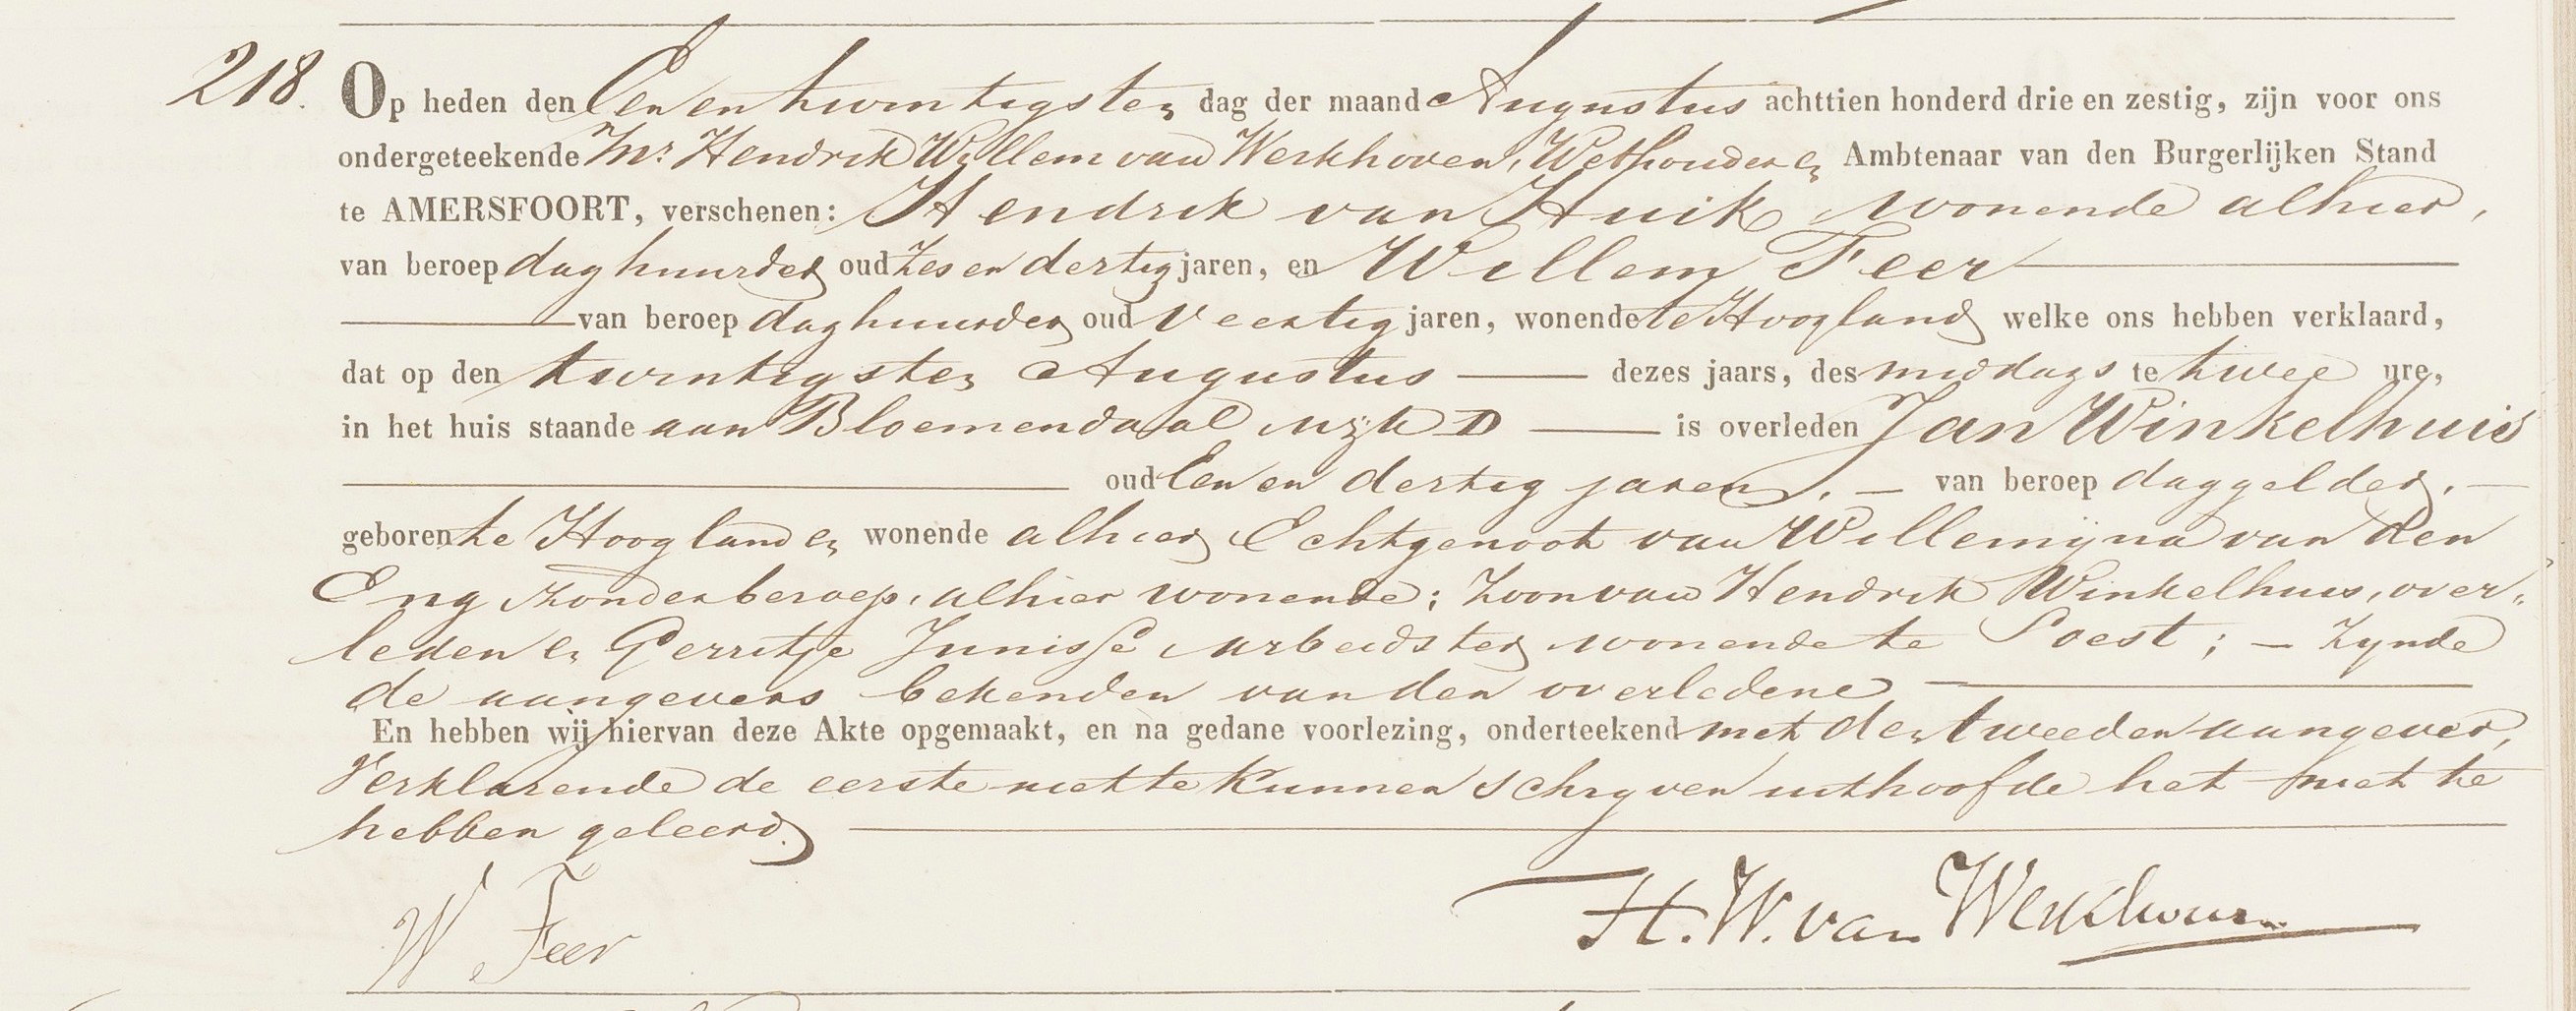 218. Op heden den Een en twintigsten dag der maand Augustus achttien honderd drie en zestig, zijn voor ons
ondergeteekende Mr. Hendrik Willem van Werkhoven, Wethouder en Ambtenaar van den Burgerlijken Stand
te AMERSFOORT, verschenen: Hendrik van Huik, wonende alhier,
van beroep daghuurder oud Zes en dertig jaren, en Willem Feer
van beroep daghuurder oud Veertig jaren, wonende te Hoogland welke ons hebben verklaard,
dat op den twintigsten Augustus dezes jaars, des middags te twee ure,
in het huis staande aan Bloemendaal wijk D is overleden Jan Winkelhuis
oud Een en dertig jaren, van beroep daggelder,
geboren te Hoogland en wonende alhier, Echtgenoot van Willemijna van den
Eng zonder beroep, alhier wonende; Zoon van Hendrik Winkelhuis, over-
leden en Gerritje Junisse arbeidster wonende te Soest; – Zynde
de aangevers bekenden van den overledene
En hebben wij hiervan deze Akte opgemaakt, en na gedane voorlezing, onderteekend met den tweeden aangever,
Verklarende de eerste niet te kunnen schryven uithoofde het niet te
hebben geleerd.
W Feer H. W. van Werkhoven